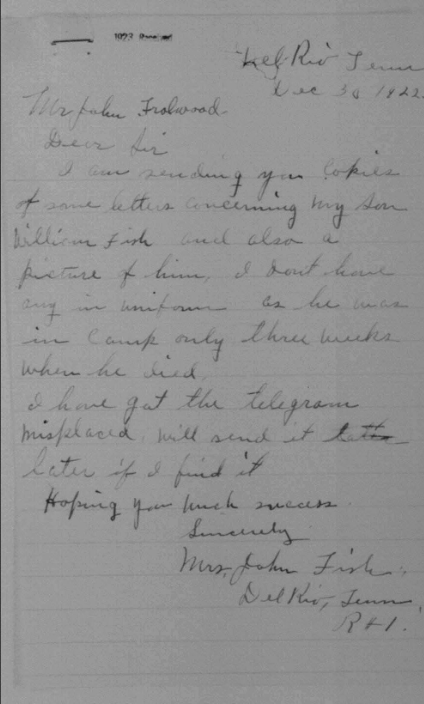 Del Rio Tenn
Dec 30 1922
Mr John Trotwood
Dear Sir
I am sending you Copies
of some letters concerning my son
William Fish and also a
picture of him, I Dont have
any in uniform as he was
in Camp only three weeks
when he died.
I have got the telegram
misplaced, will send it
later if I find it
Hoping you much success
Sincerely
Mrs. John Fish.
Del Rio, Tenn,
R#1.